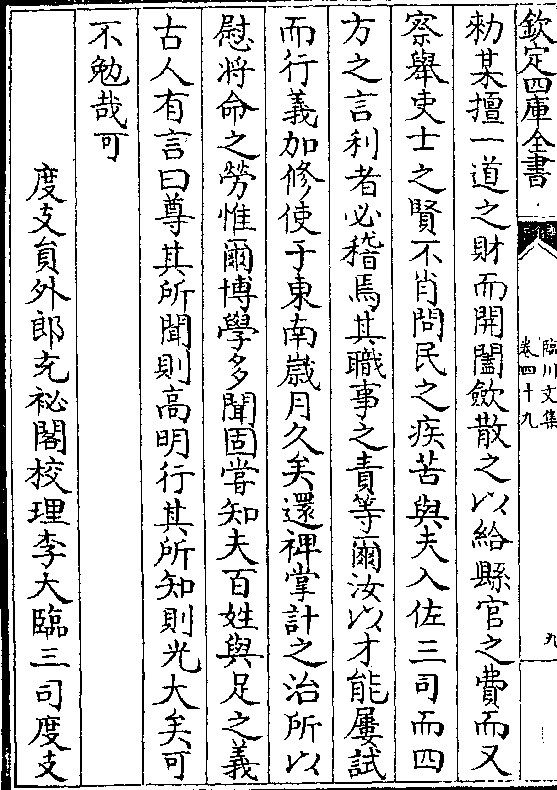 欽定四庫全書
臨川文集
卷四十九
九
勑某擅一道之財而開闔歛散之以給縣官之費而又
察舉吏士之賢不肖問民之疾苦與夫入佐三司而四
方之言利者必稽焉其職事之責等爾汝以才能屢試
而行義加修使于東南嵗月久矣還禆掌計之治所以
慰将命之勞惟爾博學多聞固嘗知夫百姓與足之義
古人有言曰尊其所聞則高明行其所知則光大矣可
不勉哉可
度支員外郎充祕閣校理李大臨三司度支